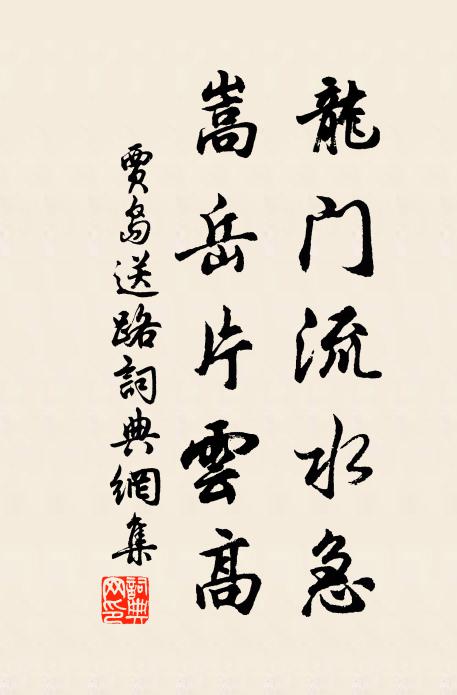 龍门流水急
嵩岳片雲高
賈島送路詞典網集
詞典网印